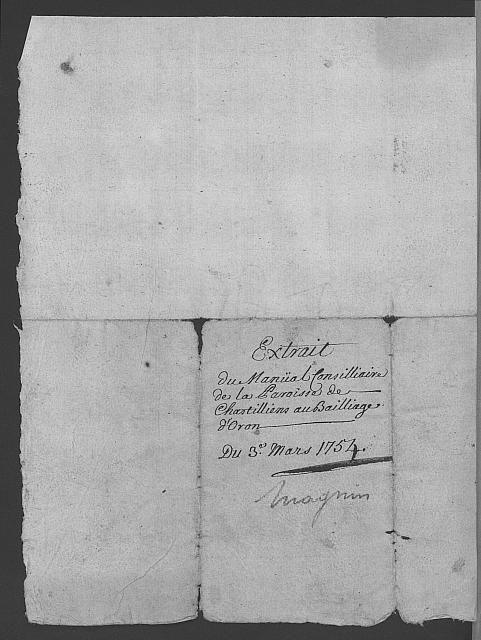 Extrait
du Manüal Consilliaire
de la Paroisse de
Chastilliens au Bailliage
d'Oron
Du 3.e Mars 1754.
Magnin